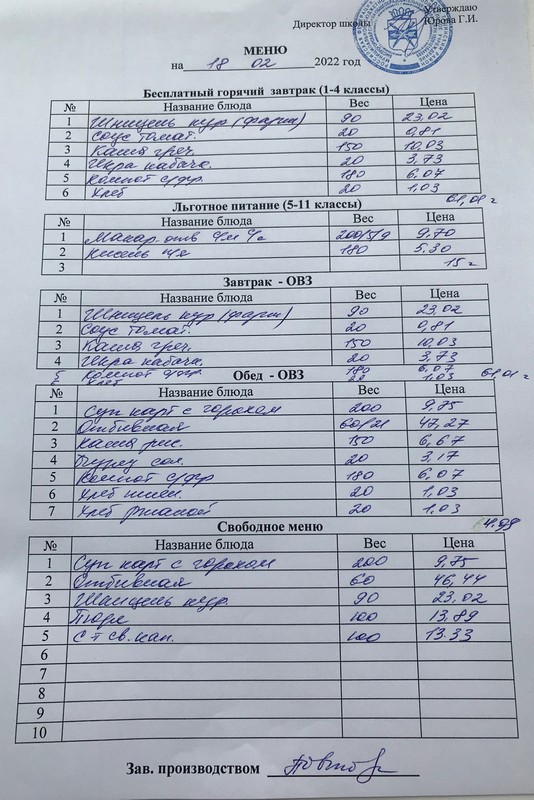 Утверждаю
Директор школы Юрова Г.И.
МЕНЮ
на 18 02 2022 год
Бесплатный горячий завтрак (1-4 классы)
№ Название блюда Вес Цена
1 Шницель кур (фарш) 90 23,02
2 Соус томат. 20 0,81
3 Каша греч. 150 10,03
4 Икра кабачк. 20 3,73
5 Компот с/фр. 180 6,07
6 Хлеб 20 1,03
Льготное питание (5-11 классы)
№ Название блюда Вес Цена
1 Макар. отв 200/5/9 9.70
2 Кисель 180 5.30
3 15
Завтрак - ОВЗ
№ Название блюда Вес Цена
1 Шницель кур (фарш) 90 23,02
2 Соус томат. 20 0,81
3 Каша греч. 150 10,03
4 Икра кабачк. 20 3,73
5 Компот с/фр. 180 6,07
Хлеб 20 1,03
Обед - ОВЗ
№ Название блюда Вес Цена
1 Суп карт с горохом 200 9,75
2 Отбивная 60/21 47,27
3 Каша рис. 150 6,67
4 сол. 20 3,17
5 Компот с/фр 180 6,07
6 Хлеб пшен. 20 1,03
7 Хлеб ржаной 20 1.03
Свободное меню
№ Название блюда Вес Цена
1 Суп карт с горохом 200 9,75
2 Отбивная 60 46,44
3 Шницель кур. 90 23,02
4 Пюре 100 13,89
5 С-т св. кап. 100 13.33
6
7
8
9
10
Зав. производством